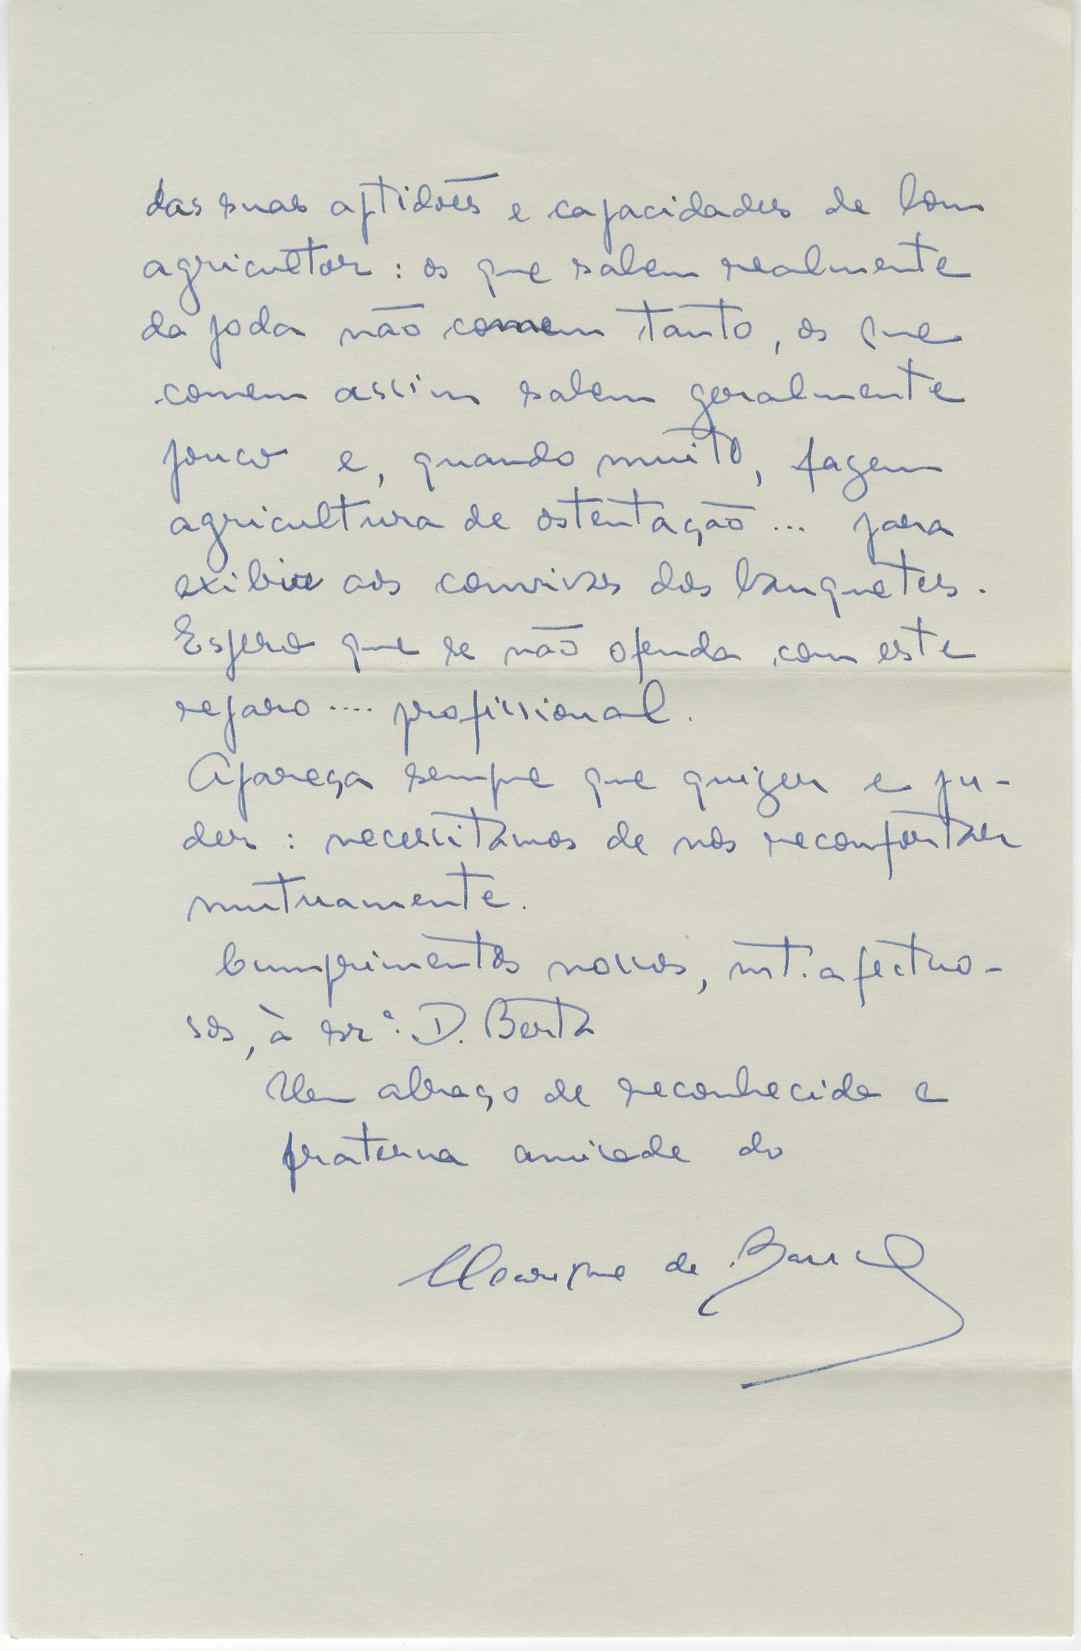 das suas aptidões e capacidades de bom
agricultor: os que sabem realmente
da poda não comem tanto, os que
comem assim sabem geralmente
pouco e, quando muito, fazem
agricultura de ostentação... para
exibir aos convivas dos banquetes.
Espero que se não ofenda com este
reparo.... profissional.
Apareça sempre que quizer e pu-
der: necessitamos de nos reconfortar
mutuamente.
Cumprimentos nossos, mt. afectuo-
sos, à srª. D. Berta
Um abraço de reconhecida e
fraterna amizade do
Henrique de Barros